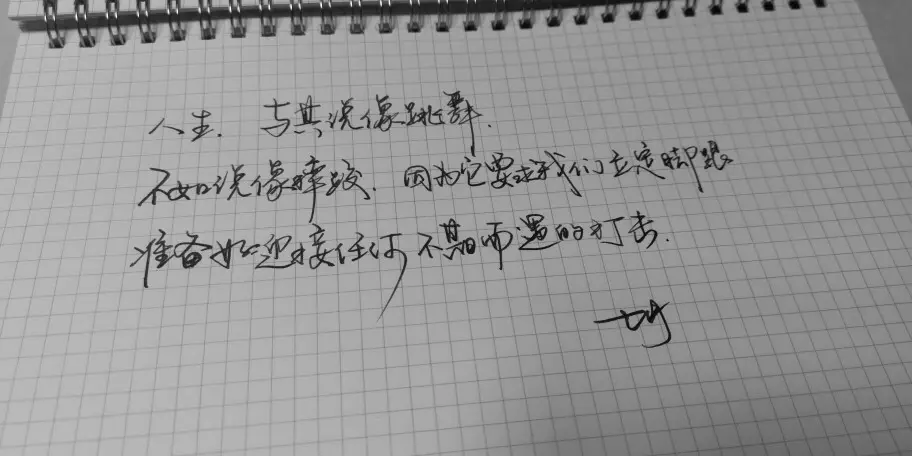 人生.与其说像跳舞.
不如说像摔跤.因为它要求我们立定脚跟
准备好迎接任何不期而遇的打击.